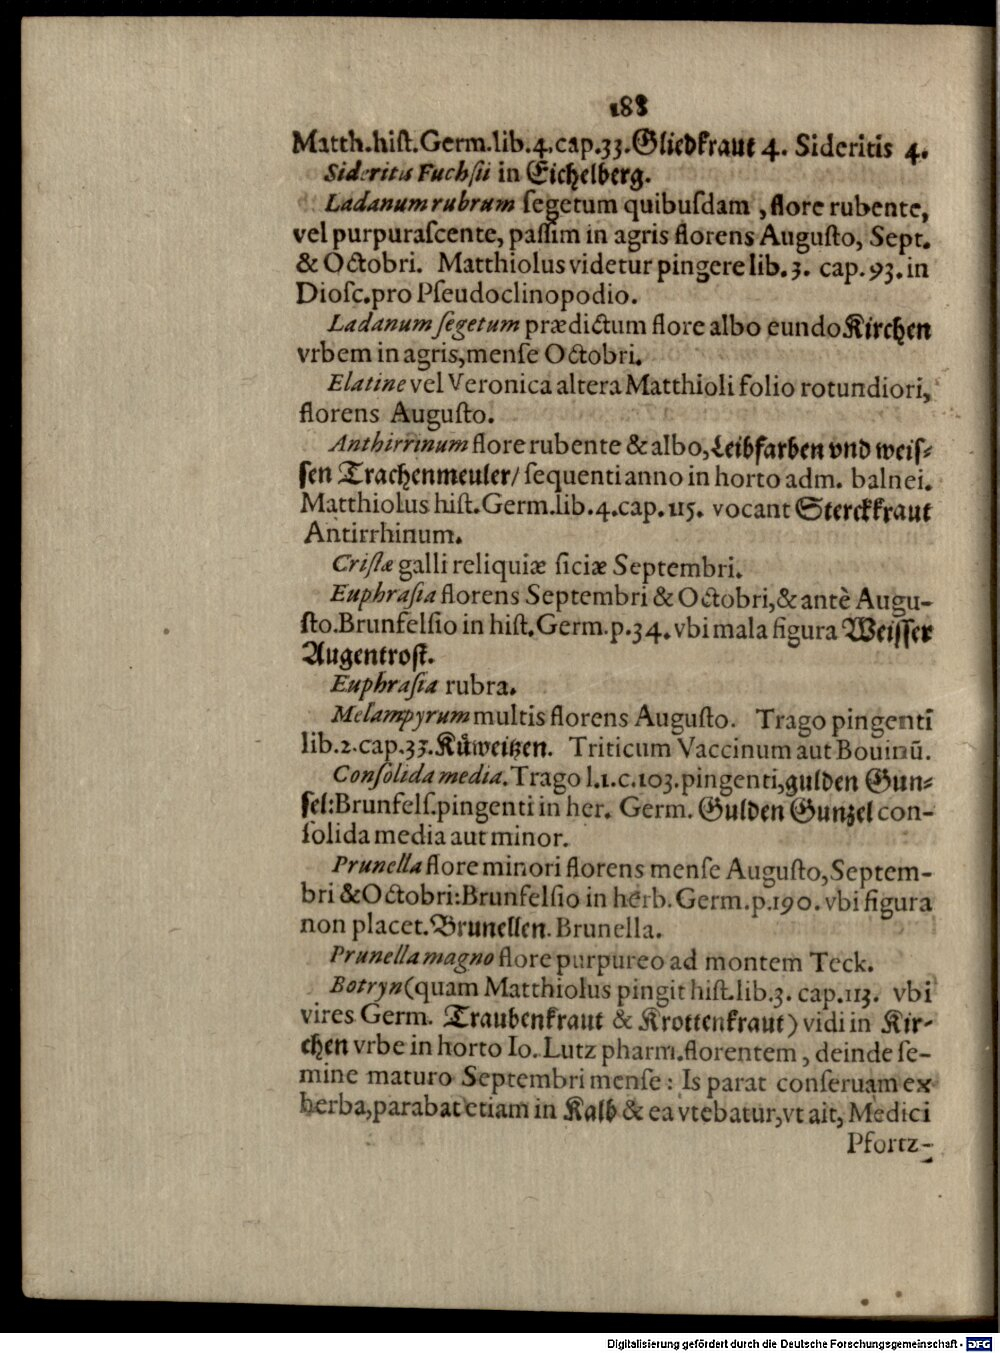 188
Matth.hiſt.Germ.lib.4.cap.33.Gliedkraut 4. Sideritis 4.
Sideritis Fuchſii in Eichelberg.
Ladanum rubrum ſegetum quibuſdam, flore rubente,
vel purpuraſcente, paſſim in agris florens Auguſto, Sept.
& Octobri. Matthiolus videtur pingere lib.3. cap.93.in
Dioſc.pro Pſeudoclinopodio.
Ladanum ſegetum prædictum flore albo eundo Kirchen
vrbem in agris,menſe Octobri.
Elatine vel Veronica altera Matthioli folio rotundiori,
florens Auguſto.
Anthirrinum flore rubente & albo,Leibfarben vnd weiſ-
ſen Trachenmeuler/ ſequenti anno in horto adm. balnei.
Matthiolus hiſt.Germ.lib.4.cap.115. vocant Sterckkraut
Antirrhinum.
Criſtæ galli reliquiæ ſiciæ Septembri.
Euphraſia florens Septembri & Octobri,& antè Augu-
ſto.Brunfelſio in hiſt.Germ.p.34.vbi mala figura Weiſſer
Augentroſt.
Euphraſia rubra.
Melampyrum multis florens Auguſto. Trago pingentī
lib.2.cap.33.Kůweitzen. Triticum Vaccinum aut Bouinū.
Conſolida media.Trago l.1.c.103.pingenti,gulden Gun-
ſel:Brunfelſ.pingenti in her. Germ. Gulden Gunzel con-
ſolida media aut minor.
Prunella flore minori florens menſe Auguſto,Septem-
bri & Octobri:Brunfelſio in herb.Germ.p.190.vbi figura
non placet.Brunellen.Brunella.
Prunella magno flore purpureo ad montem Teck.
Botryn(quam Matthiolus pingit hiſt.lib.3. cap.113. vbi
vires Germ. Traubenkraut & Krottenkraut) vidi in Kir-
chen vrbe in horto Io. Lutz pharm.florentem, deinde ſe-
mine maturo Septembri menſe: Is parat conſeruam ex
herba,parabat etiam in Kalb & ea vtebatur,vt ait, Medici
Pfortz-
Digitalisierung gefördert durch die Deutsche Forschungsgemeinschaft - DFG